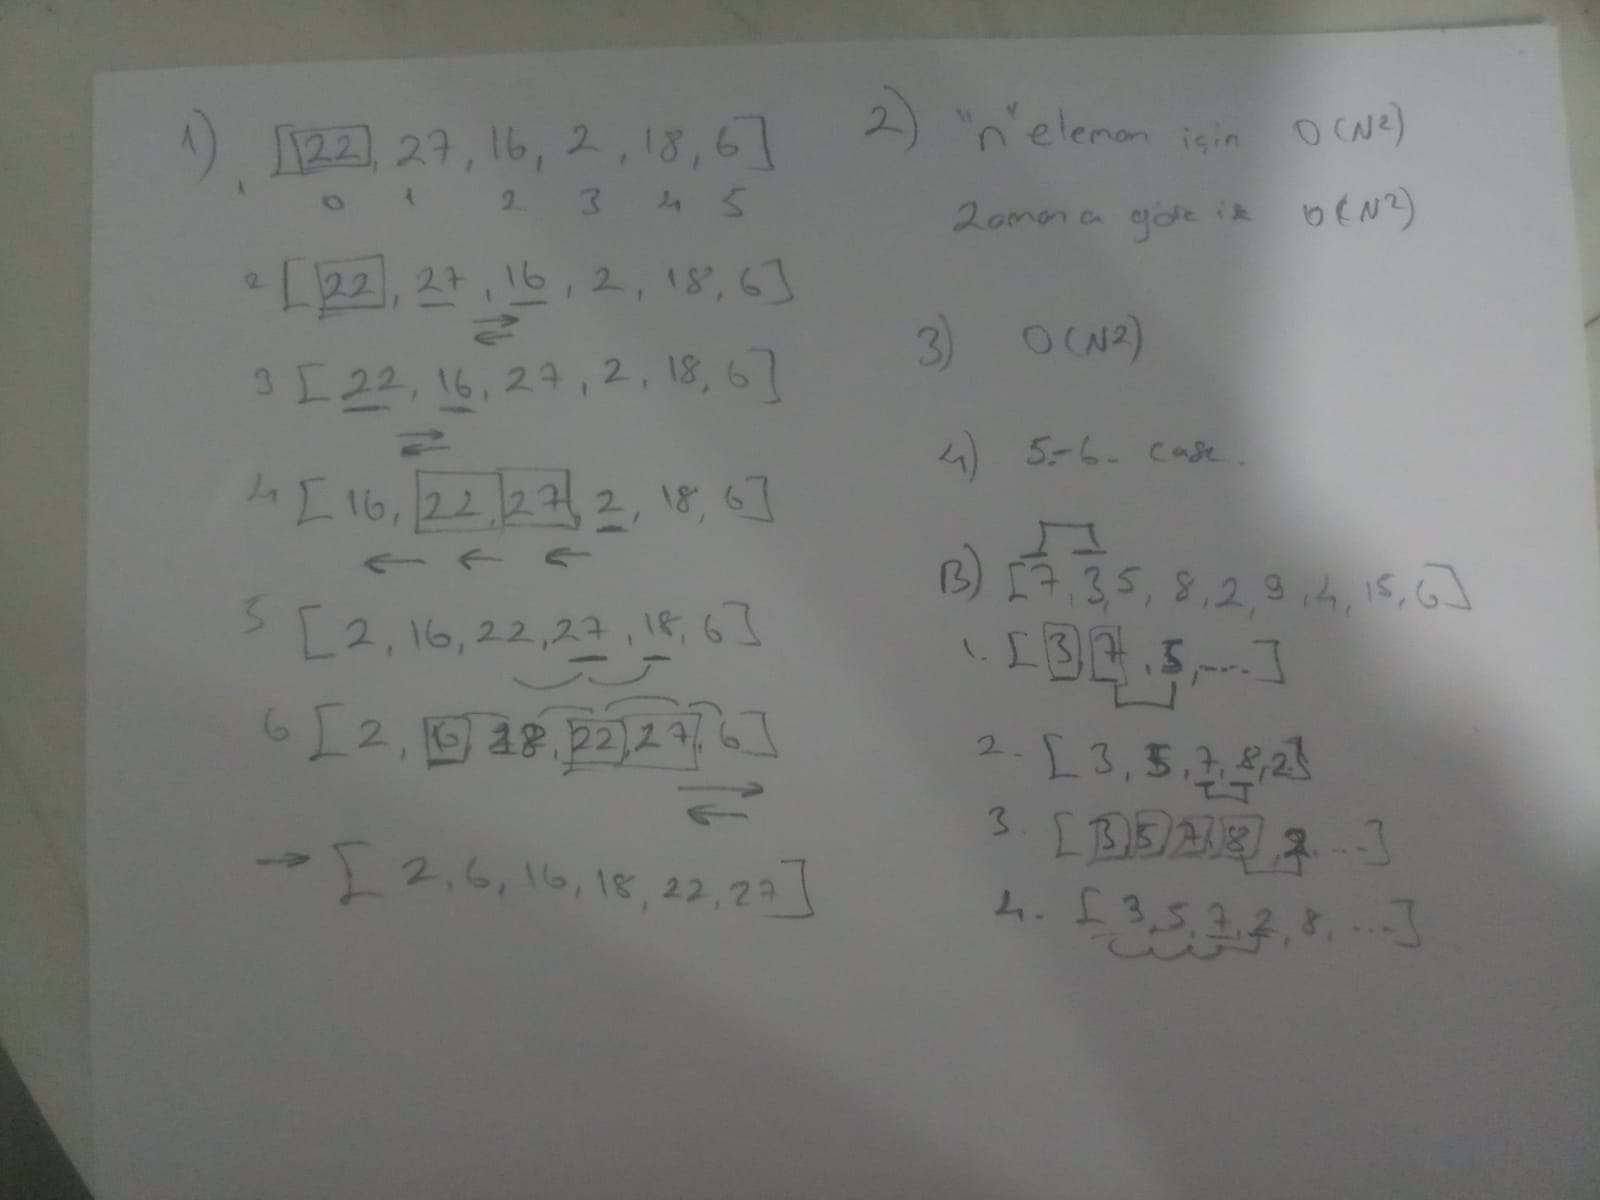 1) [22, 27, 16, 2, 18, 6]
0 1 2 3 4 5
2 [22, 27, 16, 2, 18, 6]
3 [22, 16, 27, 2, 18, 6]
4 [16, 22, 27, 2, 18, 6]
5 [2, 16, 22, 27, 18, 6]
6 [2, 16, 18, 22, 27, 6]
→ [2, 6, 16, 18, 22, 27]
2) "n" eleman için O(N²)
Zamana göre O(N²)
3) O(N²)
4) 5-6. case.
B) [7, 3, 5, 8, 2, 9, 4, 15, 6]
1. [3, 7, 5, ....]
2. [3, 5, 7, 8, 2]
3. [3, 5, 7, 8, 2, ....]
4. [3, 5, 7, 2, 8, ....]